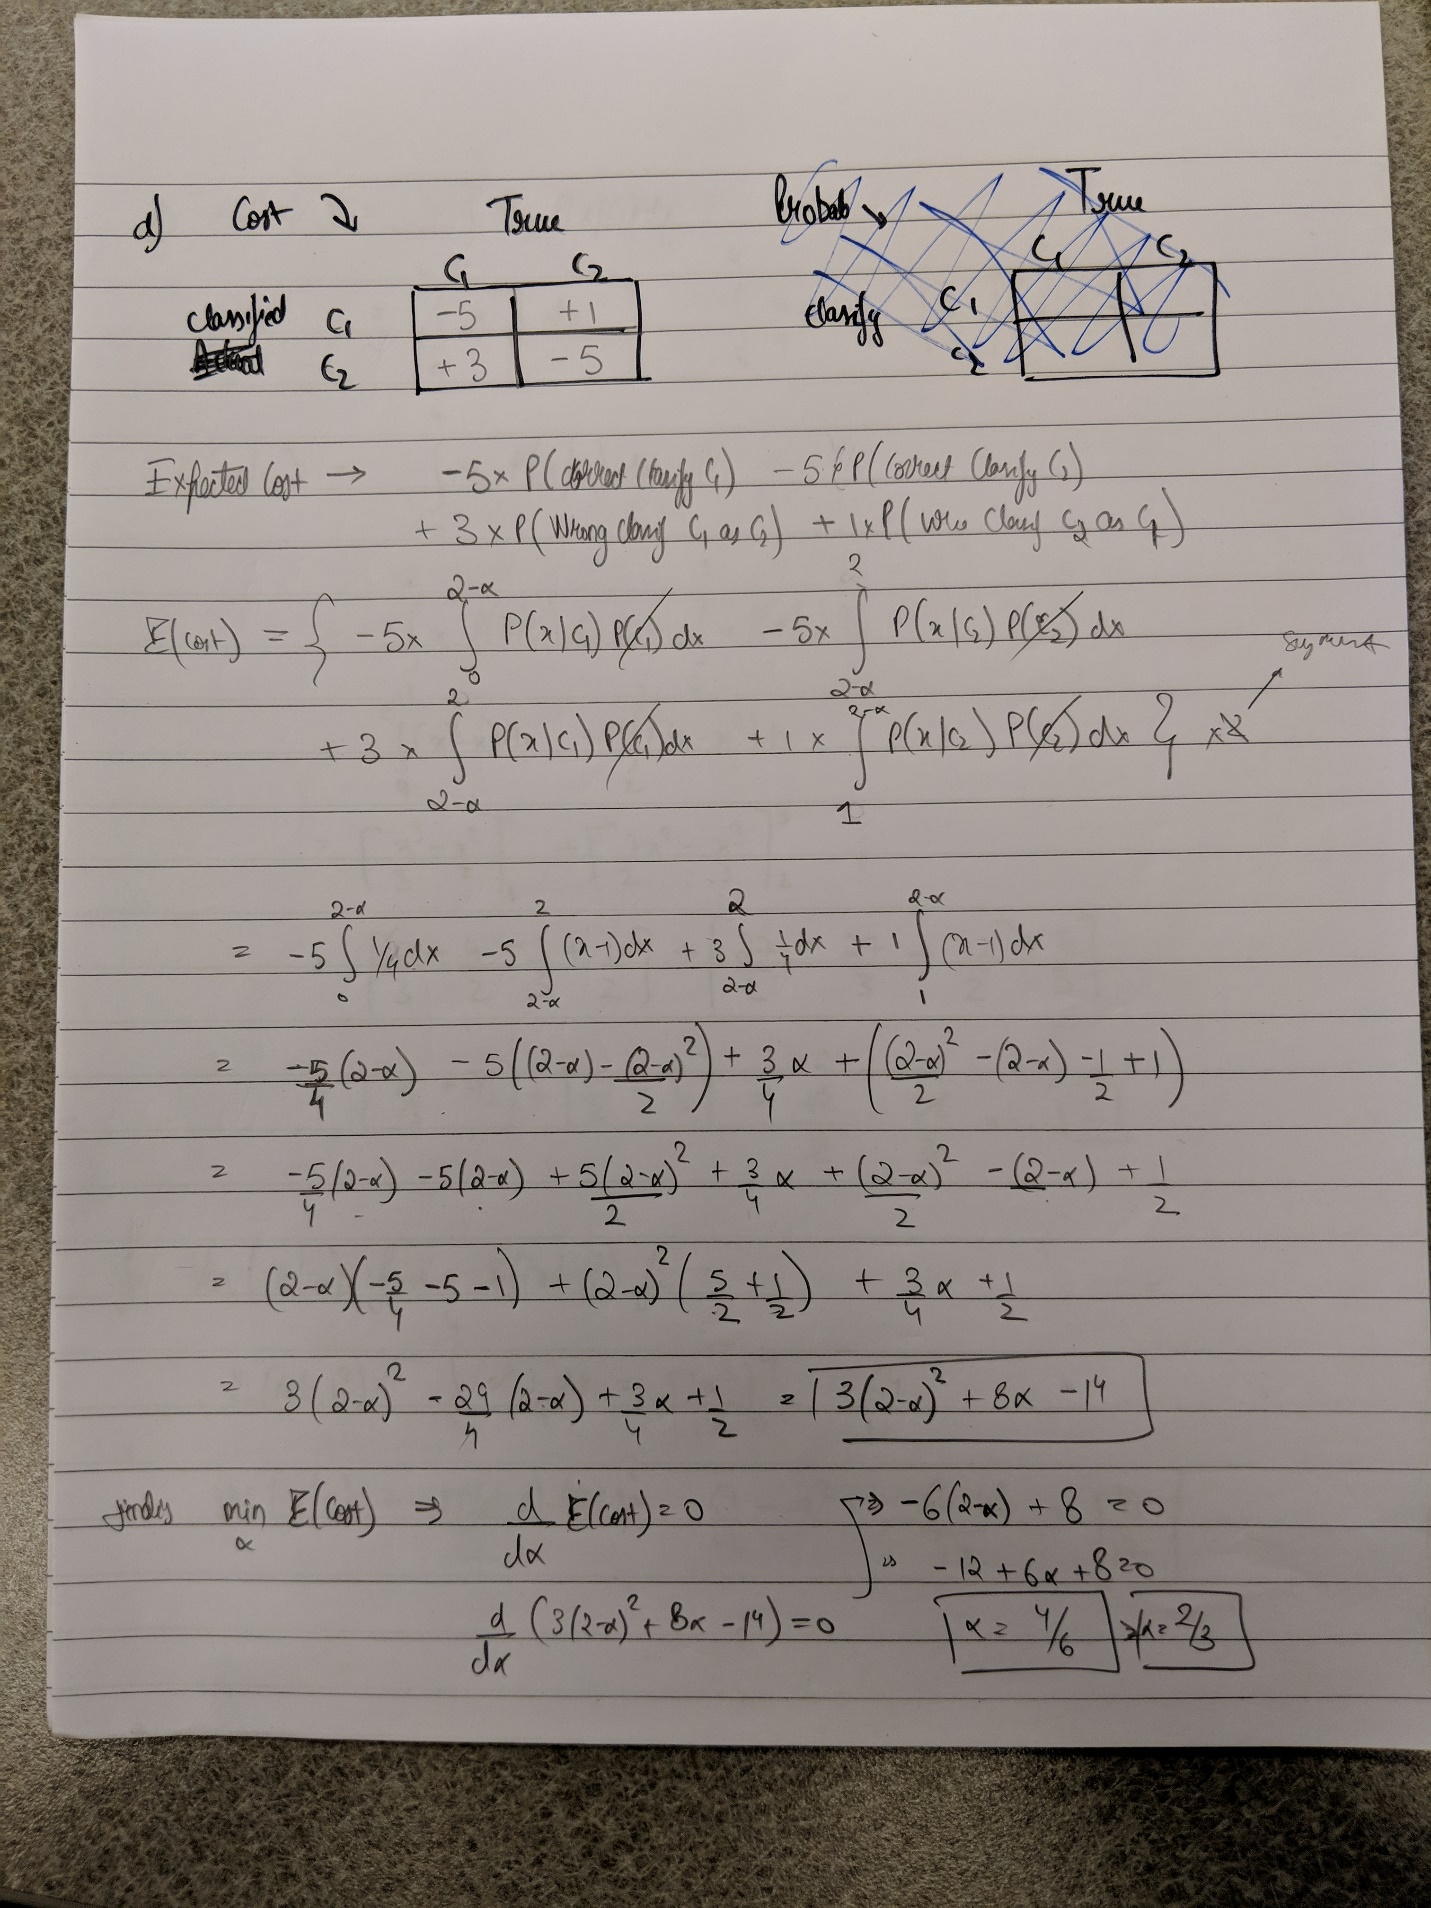 d) Cost ↘ True
C₁ C₂
Classified C₁ -5 +1
C₂ +3 -5
Probab ↘ True
C₁ C₂
Classify C₁
C₂
Expected Cost → -5 x P(correct Classify C₁) - 5 x P(correct Classify C₂)
+ 3 x P(Wrong classif C₁ as C₂) + 1 x P( Classif C₂ as C₁)
E(cost) = { -5x ∫₀^{2-α} P(x|C₁) P(C₁) dx - 5x ∫_{2-α}^{2} P(x|C₂) P(C₂) dx
+ 3 x ∫_{2-α}^{2} P(x|C₁) P(C₁) dx + 1 x ∫_{1}^{2-α} P(x|C₂) P(C₂) dx } x2
= -5 ∫₀^{2-α} 1/4 dx - 5 ∫_{2-α}^{2} (x-1) dx + 3 ∫_{2-α}^{2} 1/4 dx + 1 ∫_{1}^{2-α} (x-1) dx
= -5/4 (2-α) - 5((2-α) - (2-α)²/2) + 3/4 α + ((2-α)²/2 - (2-α) - 1/2 + 1)
= -5/4 (2-α) - 5(2-α) + 5(2-α)²/2 + 3/4 α + (2-α)²/2 - (2-α) + 1/2
= (2-α)(-5/4 - 5 - 1) + (2-α)² (5/2 + 1/2) + 3/4 α + 1/2
= 3(2-α)² - 29/4 (2-α) + 3/4 α + 1/2 = 3(2-α)² + 8α - 14
min_α E(Cost) ⇒ d/dα E(Cost) = 0
d/dα (3(2-α)² + 8α - 14) = 0
⇒ -6(2-α) + 8 = 0
⇒ -12 + 6α + 8 = 0
α = 4/6 ⇒ α = 2/3